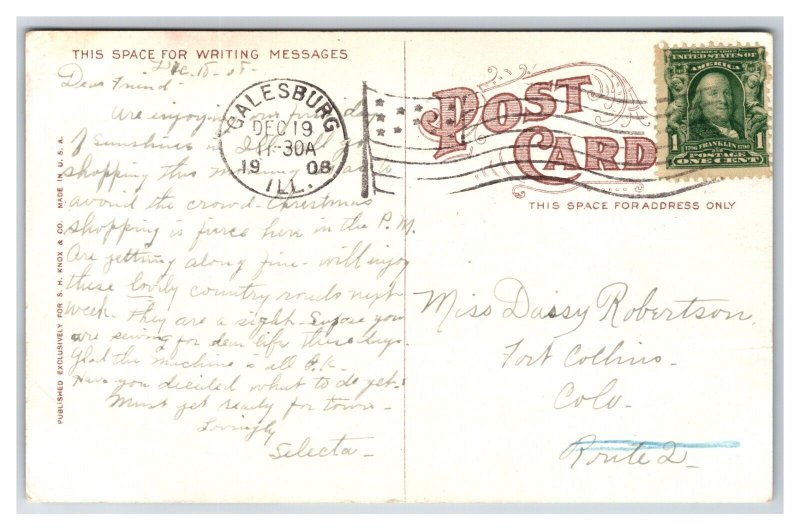 THIS SPACE FOR WRITING MESSAGES
Dec. 18 - 08 -
Dear Friend -
Are enjoying our first day
of sunshine in Ill.
shopping this morning to
avoid the crowd - Christmas
shopping is fierce here in the P.M.
Are getting along fine - will enjoy
these lovely country roads next
week. They are a sight - Supose you
are sewing for dear life these days.
Glad the machine is all O.K. -
Have you decided what to do yet -
Must get ready for town -
Lovingly
Selecta -
PUBLISHED EXCLUSIVELY FOR S. H. KNOX & CO. MADE IN U. S. A.
GALESBURG
DEC 19
1-30A
1908
ILL.
POST
CARD
THIS SPACE FOR ADDRESS ONLY
SERIES 1902
UNITED STATES OF
AMERICA
1706 FRANKLIN 1790
1 POSTAGE 1
ONE CENT
Miss Daisy Robertson
Fort Collins -
Colo -
Route 2 -